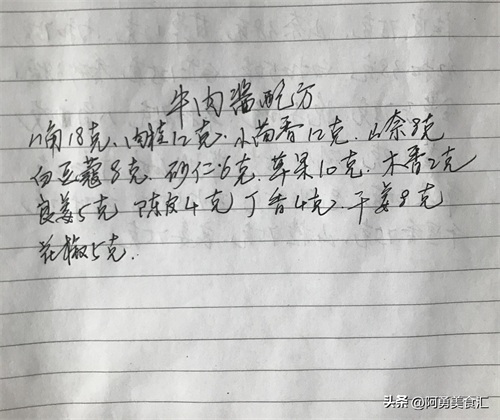 牛肉酱配方
八角18克、肉桂12克、小茴香12克、山奈8克
白豆蔻8克、砂仁6克、草果10克、木香2克
良姜5克 陈皮4克 丁香4克、干姜9克
花椒5克.
头条 @阿勇美食汇